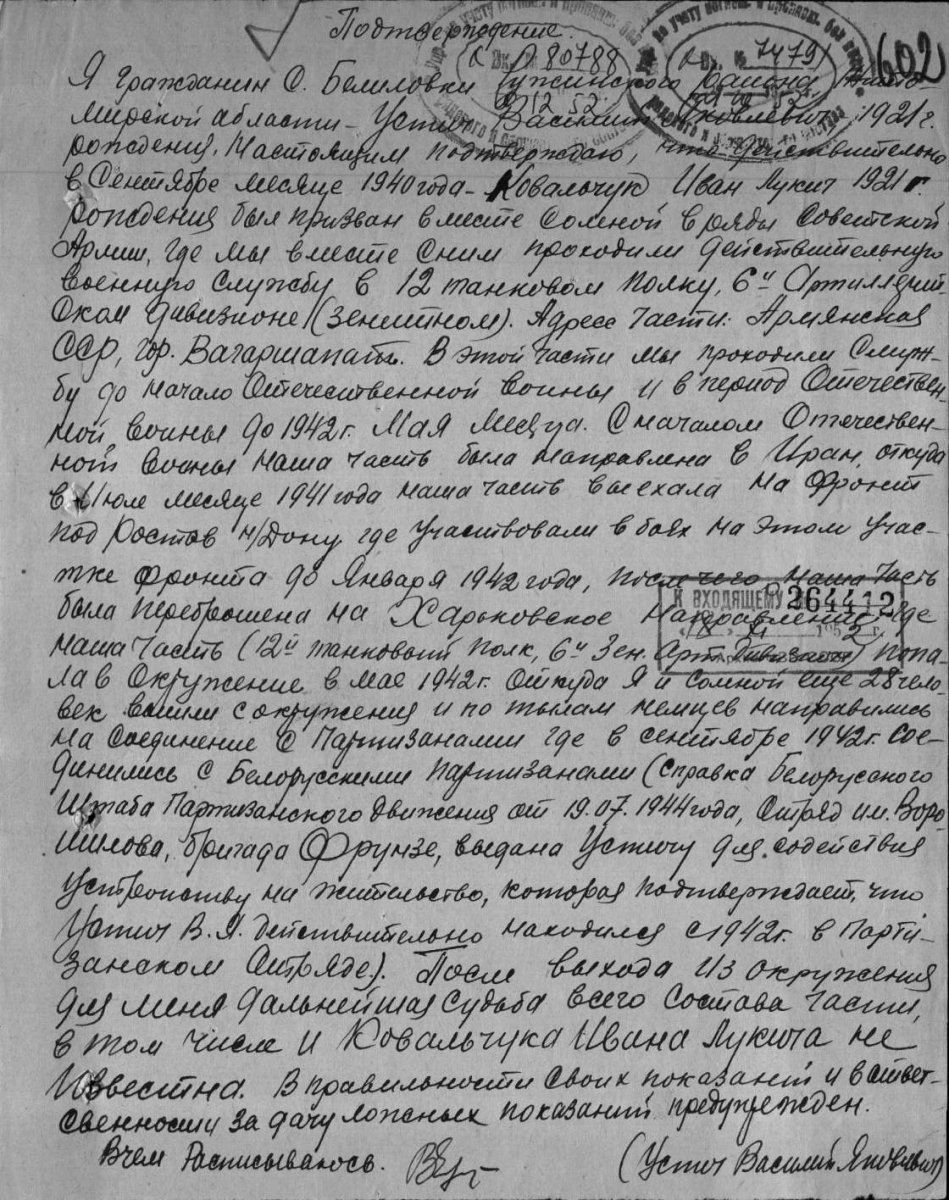 Подтверждение.
602
Вх. № 80788
Вх. № 7479
12 52
Я гражданин с. Белиловки Ружинского района, Жито-
мирской области – Устич Василий Яковлевич 1921 г.
рождения. Настоящим подтверждаю, что действительно
в Сентябре месяце 1940 года – Ковальчук Иван Лукич 1921 г.
рождения был призван вместе сомной в ряды Советской
Армии, где мы вместе сним проходили действительную
военную службу в 12 танковом полку, 6й Артиллерий
ском дивизионе (зенитном). Адресс части: Армянская
ССР, гор. Вагаршапать. В этой части мы проходили служ-
бу до начало Отечественной войны и в период Отечествен-
ной войны до 1942 г. Мая месяца. С началом Отечествен-
ной войны наша часть была направлена в Иран, откуда
в Июле месяце 1941 года наша часть выехала на фронт
под Ростов н/Дону где участвовали в боях на этом учас-
тке фронта до Января 1942 года, после чего наша часть
К ВХОДЯЩЕМУ 264412
была переброшена на Харьковское направление, где
«18» XI 1952 г.
наша часть (12й танковый полк, 6й Зен. Арт. Дивизион) попа-
ла в Окружение в мае 1942 г. Откуда я и сомной еще 28 чело
век вышли с окружения и по тылам немцев направились
на соединение с Партизанами где в сентябре 1942 г. сое-
динились с Белорусскими партизанами (справка Белорусского
Штаба Партизанского движения от 19.07.1944 года, Отряд им. Воро
шилова, бригада Фрунзе, выдана Устичу для содействия
устройству на жительство, которая подтверждает, что
Устич В. Я. действительно находился с 1942 г. в Парти-
занском Отряде). После выхода из окружения
для меня дальнейшая судьба всего состава части,
в том числе и Ковальчука Ивана Лукича не
известна. В правильности своих показаний и в ответ-
свенности за дачу ложных показаний предупрежден.
Вчем расписываюсь. (Устич Василий Яковлевич)